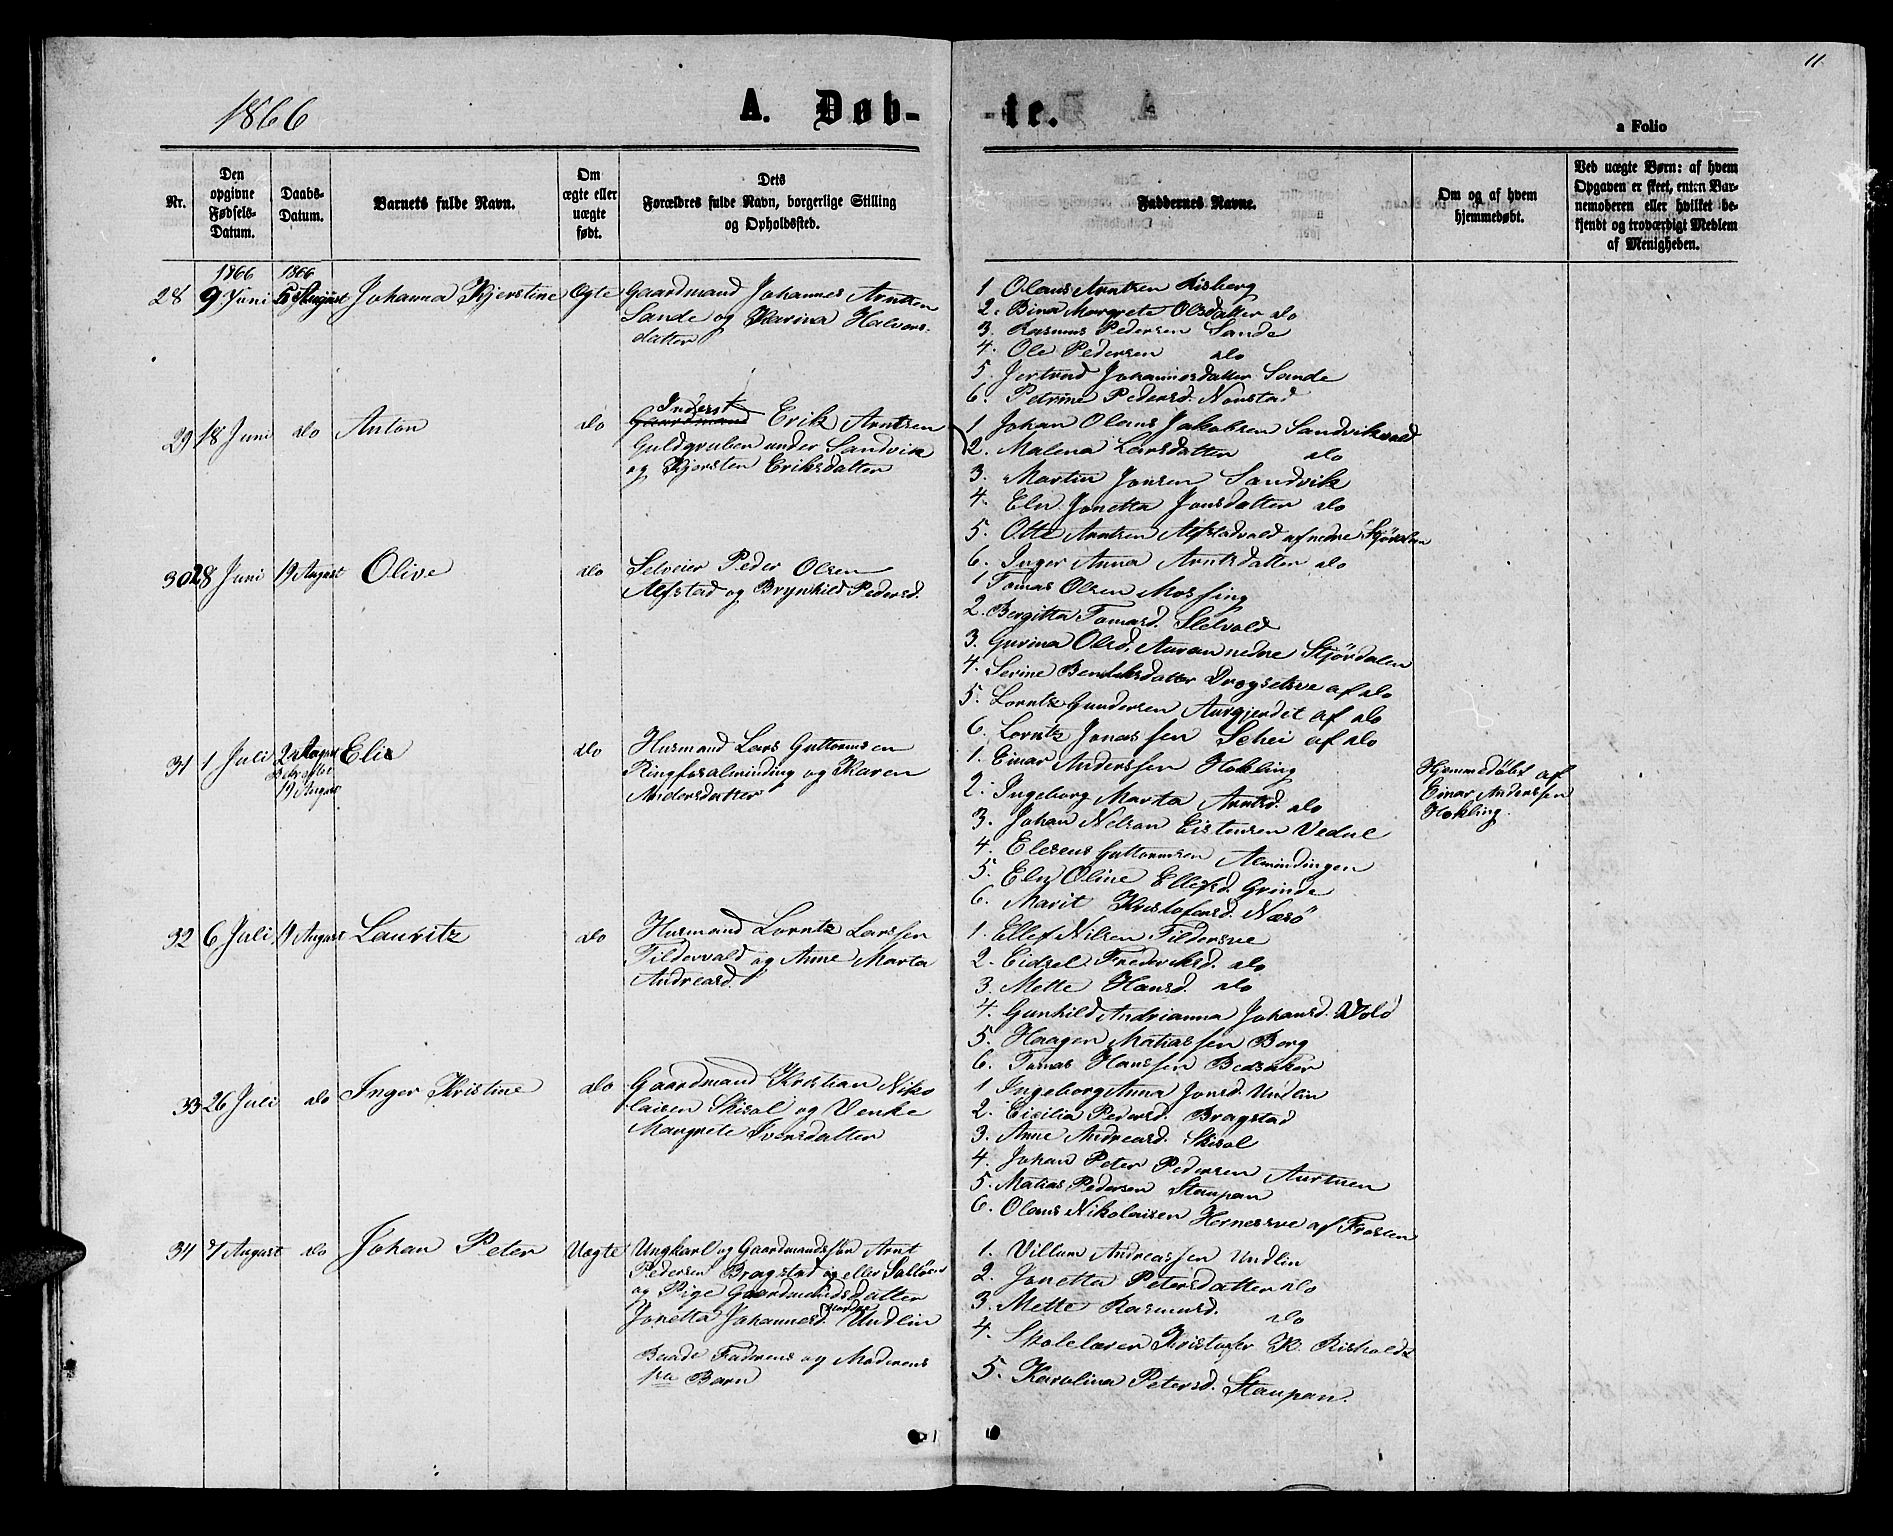 11
1866
A. Døb-
-te.
a Folio
Nr.
Den
opgivne
Fødsels-
Datum.
Daabs-
Datum.
Barnets fulde Navn.
Om
ægte eller
uægte
født.
Dets
Forældres fulde Navn, borgerlige Stilling
og Opholdssted.
Faddernes Navne.
Om og af hvem
hjemmedøbt.
Ved uægte Børn: af hvem
Opgaven er skeet, enten Bar-
nemoderen eller hvilket be-
kjendt og troværdigt Medlem
af Menigheden.
1866 1866
28 9 Juni 5 August Johanna Kjerstine Ægte
Gaardmand Johannes Arntsen
Sande og Karina Halvors-
datter
1 Olaus Arntsen Risberg
2. Bina Margrete Olsdatter do
3. Rasmus Pedersen Sande
4. Ole Pedersen do
5. Jertrud Johannesdatter Sande
6. Petrine Pedersd. Nonstad
29 18 Juni do Anton do
Inderst
Gaardmand Erik Arntsen
Guldgruben under Sandvik
og Kjersten Eriksdatter
1 Johan Olaus Jakobsen Sandvikvald
2. Malena Larsdatter do
3. Martin Jonsen Sandvik
4. Eln Jonetta Jonsdatter do
5. Otte Arntsen Alfstadvald af nedre Stjørdalen
6. Inger Anna Arntsdatter do
30 28 Juni 19 August Olive do
Selveier Peder Olsen
Alfstad og Brynhild Pedersd.
1 Tomas Olsen Mossing
2. Bergitta Tomasd. Slelvold
3. Gurina Olsd. Auran nedre Stjørdalen
4. Serine Bendiksdatter Drogsetsve af do
5. Lorntz Gundersen Aurgjerdet af do
6. Lorntz Jonassen Schei af do
31 1 Juli 2 August
19 August
Elis do
Husmand Lars Guttormsen
Ringfosalminding og Karen
Andersdatter
1. Einar Anderssen Hokling
2. Ingeborg Marta Arntsd. do
3. Johan Nelson Eistensen Vedul
4. Eleseus Guttormsen Almindingen
5. Eln Oline Ellefsd. Grinde
6. Marit Kristofersd. Næsø
Hjemmedøbt af
Einar Anderssen
Hokling.
32 6 Juli 19 August Lauritz do
Husmand Lorntz Larssen
Tildervald og Anne Marta
Andreasd.
1. Ellef Nilsen Tildersve
2. Eidsel Frederiksd. do
3. Mette Hansd. do
4. Gunhild Andrianna Johansd. Vold
5. Haagen Matiassen Borg
6. Tomas Hanssen Bedsaker
33 26 Juli do Inger Kristine do
Gaardmand Kristian Niko
laisen Skisol og Venke
Margrete Iversdatter
1 Ingeborg Anna Jonsd. Undlin
2. Cicilia Pedersd. Bragstad
3. Anne Andreasd. Skisol
4. Johan Peter Pedersen Aurtuen
5. Matias Pedersen Staupan
6. Olaus Nikolaisen Hernessve af Frosten
34 7 August do Johan Peter Uægte
Ungkarl og Gaardmandssøn Arnt
Pedersen Bragstad og eller
og Pige Gaardmandsdatter
Jonetta Johannesd. nordre Undlin
Baade Faderens og Moderens
1ste Barn
1. Villum Andreassen Undlin
2. Jonetta Petersdatter do
3. Mette Rasmusd. do
4. Skolelærer Kristofer K. Risholdt
5. Karolina Petersd. Staupan.